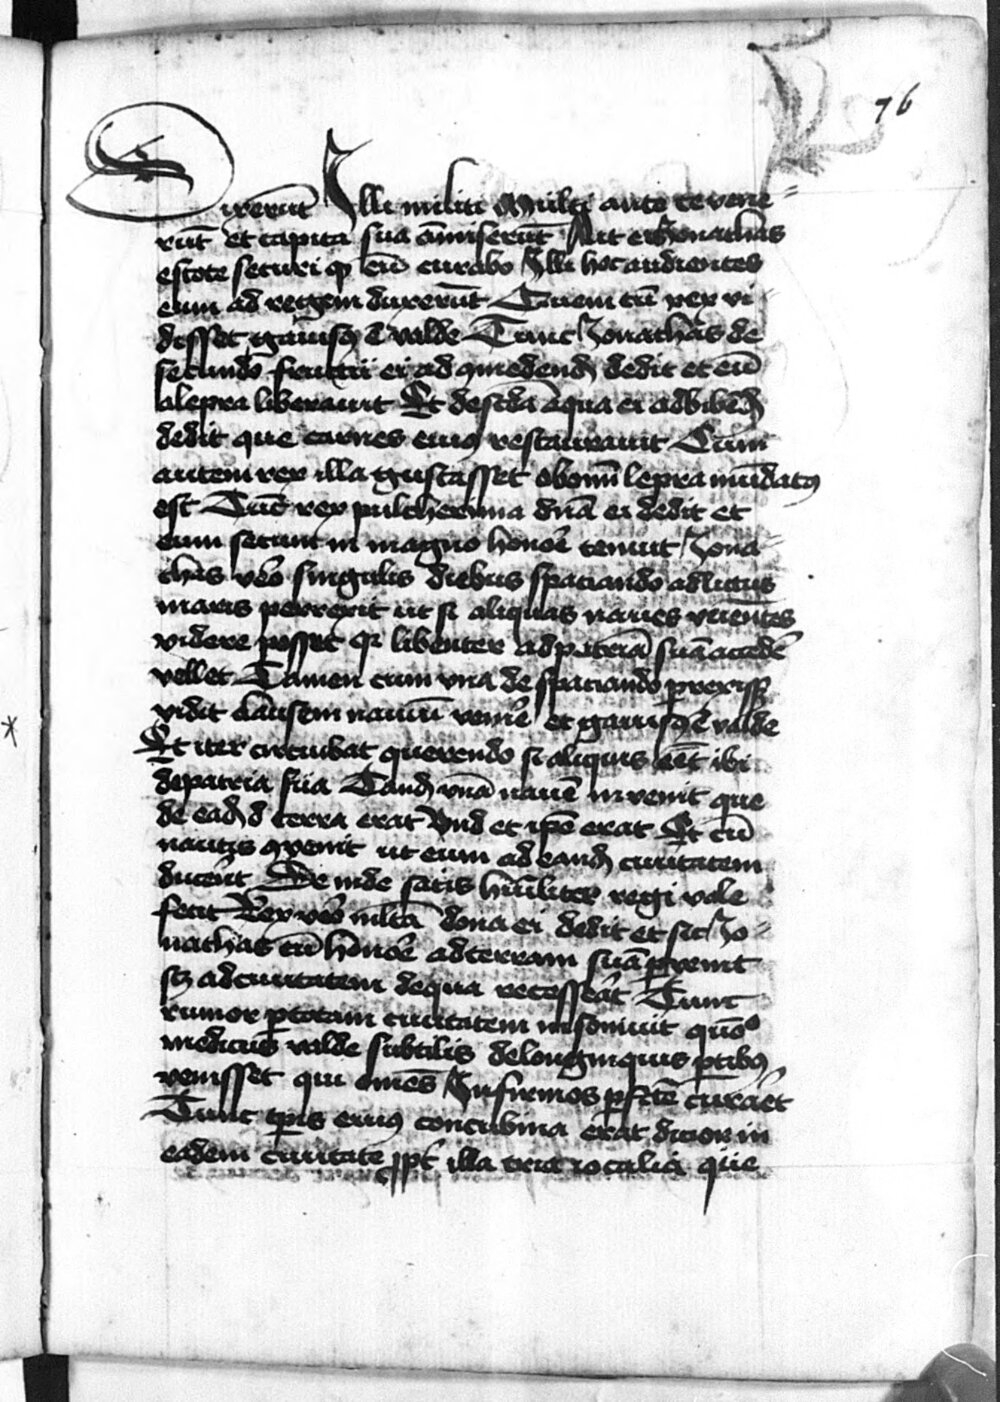 76
Dixerūt Illi militi Multi ante te vene-
rūt et capita sua āmiserūt Ait ei Jonathas
estote securi qꝫ eū curabo Illi hoc audientes
eum ad regem duxerūt Quem cū rex vi-
disset gauisꝰ ē valde Tunc Jonathas de
secundo fructu ei ad comedendū dedit et eū
a lepra liberauit Et de scd̄a aqua ei ad bibēdū
dedit que carnes eiuꝰ restaurauit Cum
autem rex illa gustasset ab omī lepra mūdatꝰ
est Tūc rex pulcherima dōa ei dedit et
eum secum in magno honōe tenuit Jona-
thas vēo singulis diebus spaciando ad litus
maris perrexit ut si aliquas naues venientes
videre posset qꝛ libenter ad patriā suā accedē
vellet Tamen cum vna de spaciando prexissꝫ
vidit classem nauiū venīe et gauisꝰ ē valde
Et iter circuibat querendo si aliquis eēt ibi
de patria sua Tandē vnā nauē invenit que
de eadē terra erat Vnd et ipē erat Et cū
nautis ꝯvenit ut eum ad eandē ciuitatem
ducerēt De inde satis hūiliter regi vale
fecit Rex vēo mltā dona ei dedit et sic Jo-
nathas cū honōe ad terram suā pvenit
sꝫ ad ciuitatem de qua recesserāt Tunc
rumor p totam ciuitatem insonuit quōo
medicus valde subtilis de longinquis ptibꝰ
venisset qui omēs Infirmos pfcē curāet
Tunc tpis eiuꝰ concubina erat dicior in
eadem ciuitate ppt illa tria iocalia que